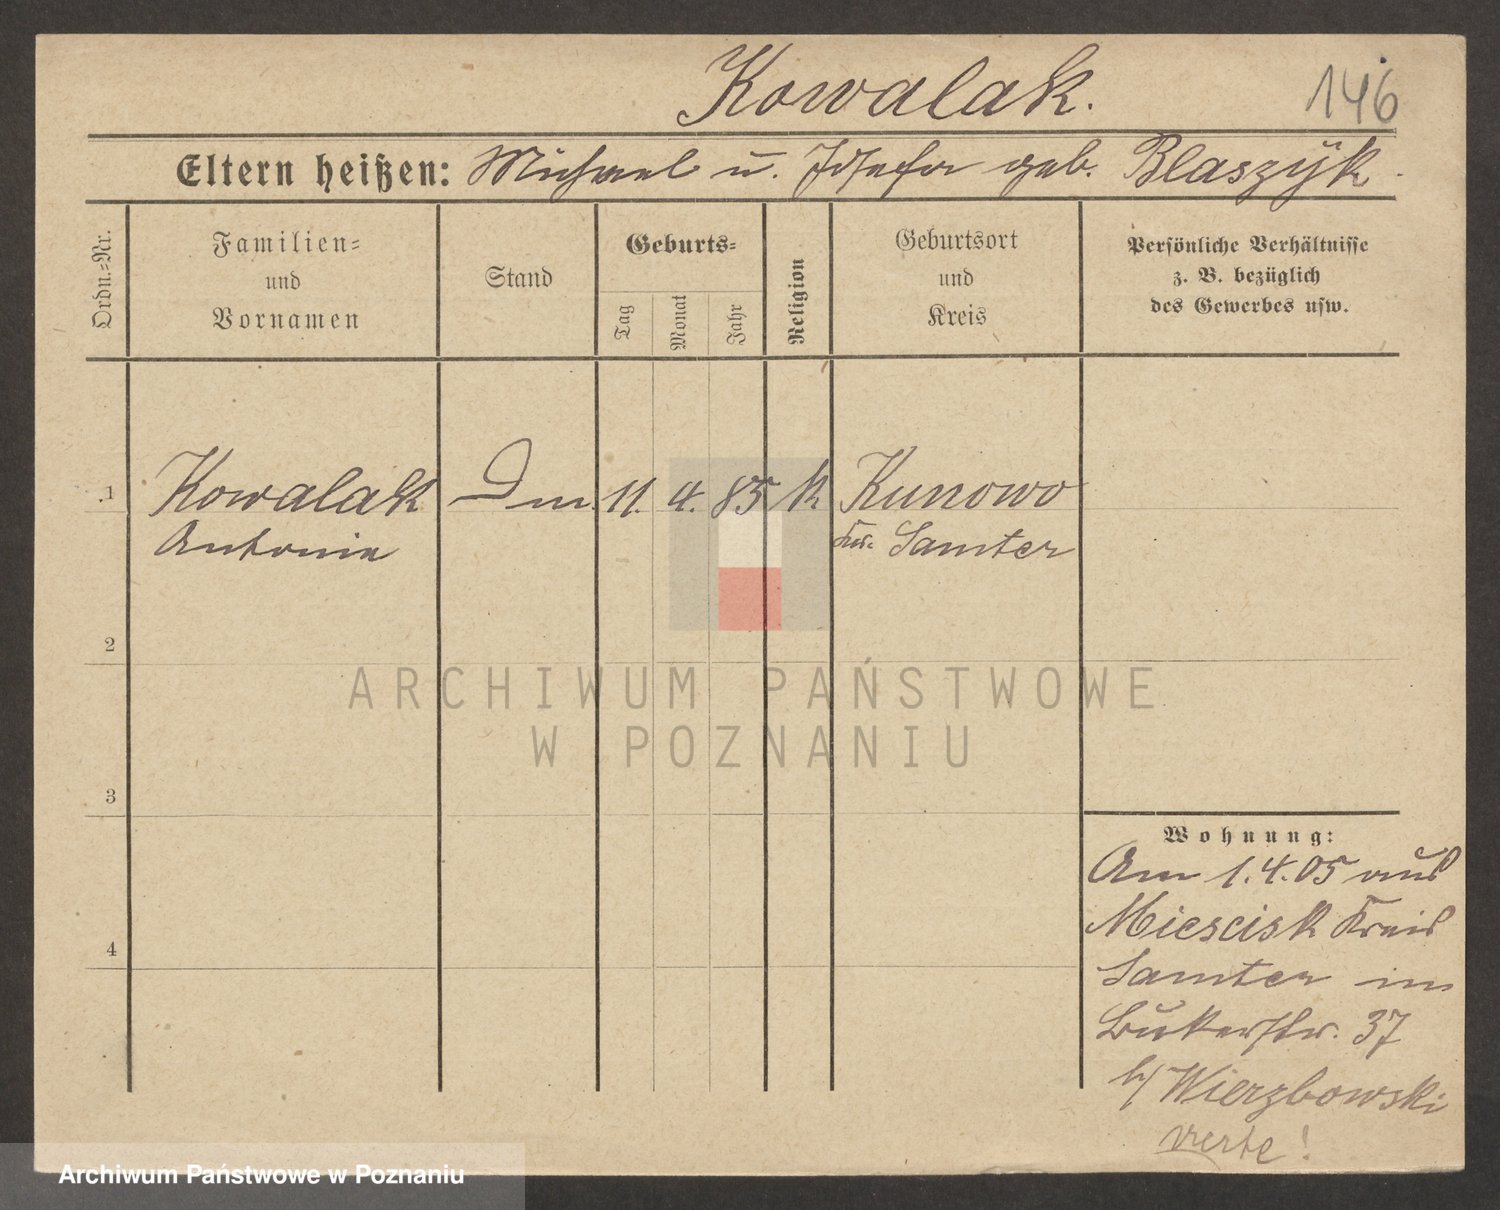 Kowalak. 146
Eltern heißen: Michael u. Josefa geb. Blaszyk.
Ordn.-Nr.
Familien-
und
Vornamen
Stand
Geburts-
Tag
Monat
Jahr
Religion
Geburtsort
und
Kreis
Persönliche Verhältnisse
z. B. bezüglich
des Gewerbes usw.
1 Kowalak 11. 4. 85 k Kunowo
Antonie Samter
2
3
4
Wohnung:
Am 1.4.05 aus
Miescisk Kreis
Samter in
Bukerstr. 37
b/ Wierzbowski
verte!
ARCHIWUM PAŃSTWOWE
W POZNANIU
Archiwum Państwowe w Poznaniu